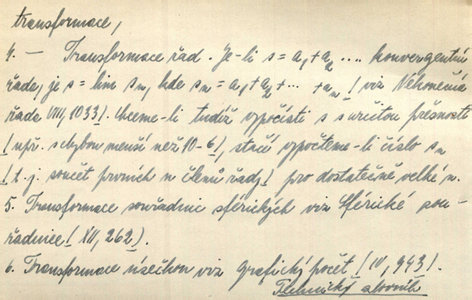 transformace,
4. — Transformace řad. Je-li s = a₁ + a₂ .... konvergentní
řada, je s = lim sₙ, kde sₙ = a₁ + a₂ + ... + aₙ / viz Nekonečná
řada VIII, 1033). Chceme-li tudíž vypočísti s s určitou přesností
/ např. s chybou menší než 10-6/, stačí vypočteme-li číslo sₙ
/ t. j. součet prvních n členů řady/ pro dostatečně velké n.
5. Transformace souřadnic sférických viz Sférické sou-
řadnice / XII, 262).
6. Transformace úseček viz Grafický počet / IV, 943).
Technický slovník